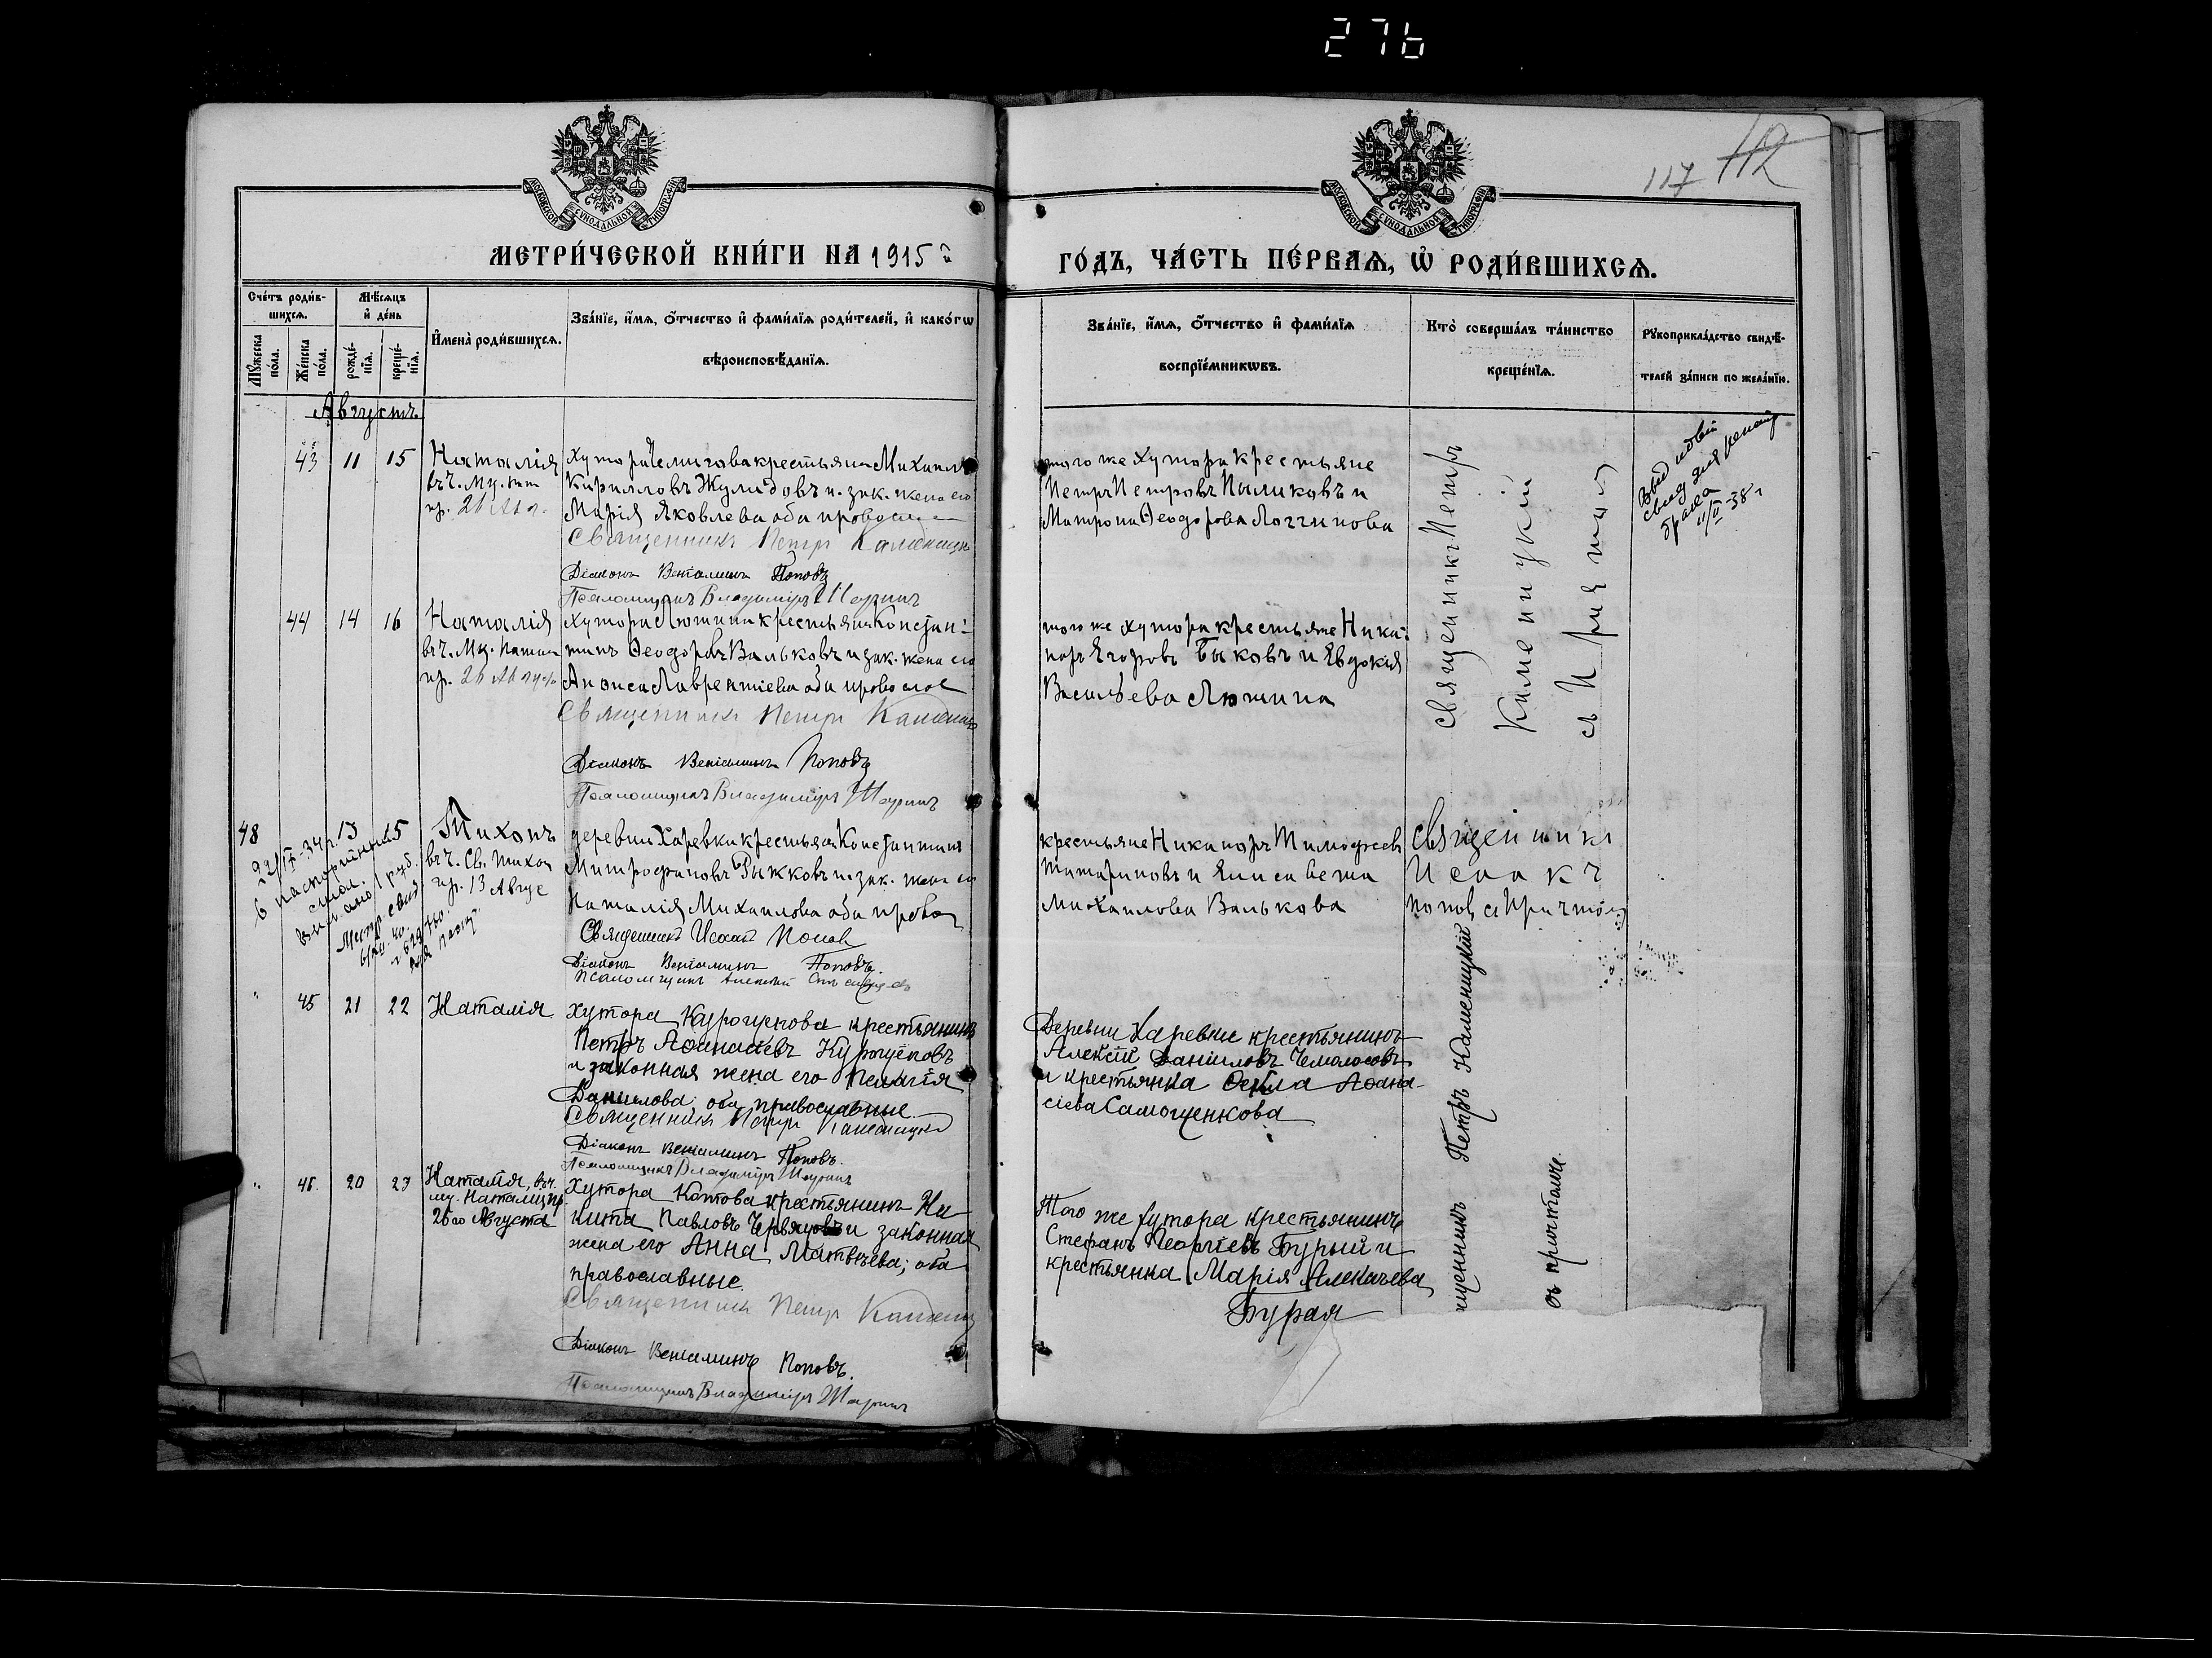 276
117 112
МОСКОВСКОЙ СѴНОДАЛЬНОЙ ТИПОГРАФІИ
МОСКОВСКОЙ СѴНОДАЛЬНОЙ ТИПОГРАФІИ
МЕТРИ́ЧЕСКОЙ КНИ́ГИ НА 1915 й
ГО́ДЪ, ЧА́СТЬ ПЕ́РВАѦ, Ѡ҆ РОДИ́ВШИХСѦ.
Сче́тъ роди́вшихсѧ.
Мꙋ́жеска по́ла.
Же́нска по́ла.
Мѣ́сѧцъ и҆ де́нь
рожде́нїѧ.
креще́нїѧ.
И҆мена̀ роди́вшихсѧ.
Зва́нїе, и҆́мѧ, ѻ҆́тчество и҆ фами́лїѧ роди́телей, и҆ како́гѡ
вѣроисповѣ́данїѧ.
Зва́нїе, и҆́мѧ, ѻ҆́тчество и҆ фами́лїѧ
воспрїе́мникѡвъ.
Кто̀ соверша́лъ та́инство
креще́нїѧ.
Рꙋкоприкла́дство свидѣ́-
телей за́писи по жела́нїю.
Августъ
43 11 15 Наталія
въ ч. му.
пр. 26 Ав
Хутора крестьянинъ Михаилъ
Кирилловъ Жулидовъ и зак. жена его
Марія Яковлева оба правосл
Священникъ Петръ Каменицк
Діаконъ Веніаминъ Поповъ
Псаломщикъ Владиміръ
того же хутора крестьяне
Петръ Петровъ Пыликовъ и
Матрона Ѳеодорова Логгинова
Священникъ Петръ
Каменицкій
съ Причтомъ
брака
11/II-38 г
44 14 16 Наталія
въ ч. Му. Натал
пр. 26 Августа
Хутора Лютина крестьянинъ Констан-
тинъ Ѳеодоровъ Вальковъ и зак. жена его
Анѳиса Лаврентіева оба правосл
Священникъ Петръ Камениц
Діаконъ Веніаминъ Поповъ
Псаломщикъ Владиміръ
того же хутора крестьяне Ника-
норъ Егоровъ Быковъ и Евдокія
Васильева Лютина
48 13 15 Тихонъ
въ ч. Св. Тихон
пр. 13 Авгус
22/IX-34 г.
в паспортный
стол.
1 руб.
деревни Харевки крестьянинъ Константинъ
Митрофановъ Рыжковъ и зак. жена его
Наталія Михаилова оба правос
Священникъ Исаакъ Попов
Діаконъ Веніаминъ Поповъ.
Псаломщикъ Алексѣй
крестьяне Никаноръ Тимофеев
Татариновъ и Елисавета
Михаилова Валькова
Священникъ
Исаакъ
Попов съ Причтомъ
" 45 21 22 Наталія.
хутора Курощепова крестьянинъ
Петръ Аѳанасіевъ Курощеповъ
и законная жена его Пелагія
Даниилова; оба православные.
Священникъ Петръ Каменицкі
Діаконъ Веніаминъ Поповъ.
Псаломщикъ Владиміръ
Деревни Харевки крестьянинъ
Алексій Данииловъ Чемолосовъ
и крестьянка Ѳекла Аѳана-
сіева Самощенкова
" 46. 20 23 Наталія, въ ч.
му. Наталіи, пр.
26го Августа
Хутора Котова крестьянинъ Ни-
кита Павловъ Червяковъ и законная
жена его Анна Матвѣева; оба
православные.
Священникъ Петръ Камениц
Діаконъ Веніаминъ Поповъ.
Псаломщикъ Владиміръ
Того же хутора крестьянинъ
Стефанъ Георгіевъ Бурый и
крестьянка Марія Алексѣева
Бурая
щенникъ Петръ Каменицкій
съ причтомъ.